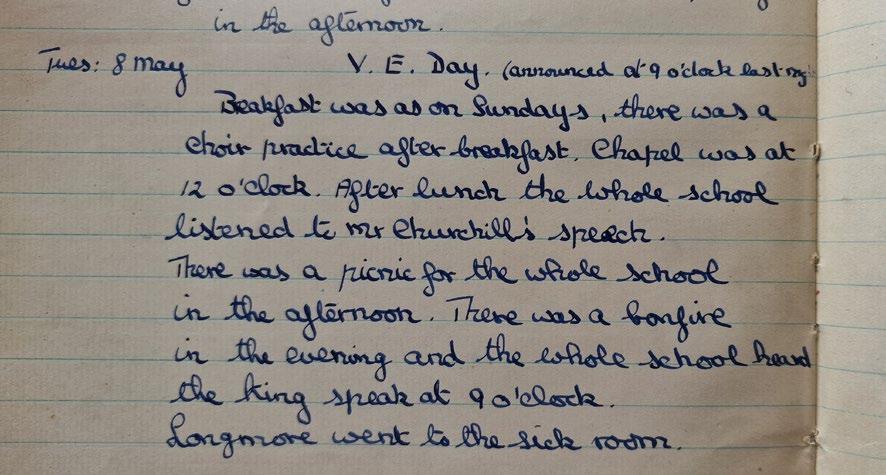 in the afternoon.
Tues: 8 May V. E. Day. (announced at 9 o'clock last
Beakfast was as on Sundays, there was a
choir practice after breakfast. Chapel was at
12 o'clock. After lunch the whole school
listened to Mr Churchill's speech.
There was a picnic for the whole school
in the afternoon. There was a bonfire
in the evening and the whole school heard
the King speak at 9 o'clock.
Longmore went to the sick room.